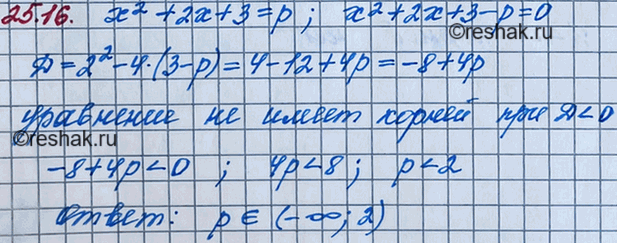 25.16. x² + 2x + 3 = p ; x² + 2x + 3 - p = 0
D = 2² - 4·(3-p) = 4 - 12 + 4p = -8 + 4p
уравнение не имеет корней при D < 0
-8 + 4p < 0 ; 4p < 8 ; p < 2
Ответ: p ∈ (-∞; 2)
©reshak.ru
©reshak.ru
©reshak.ru